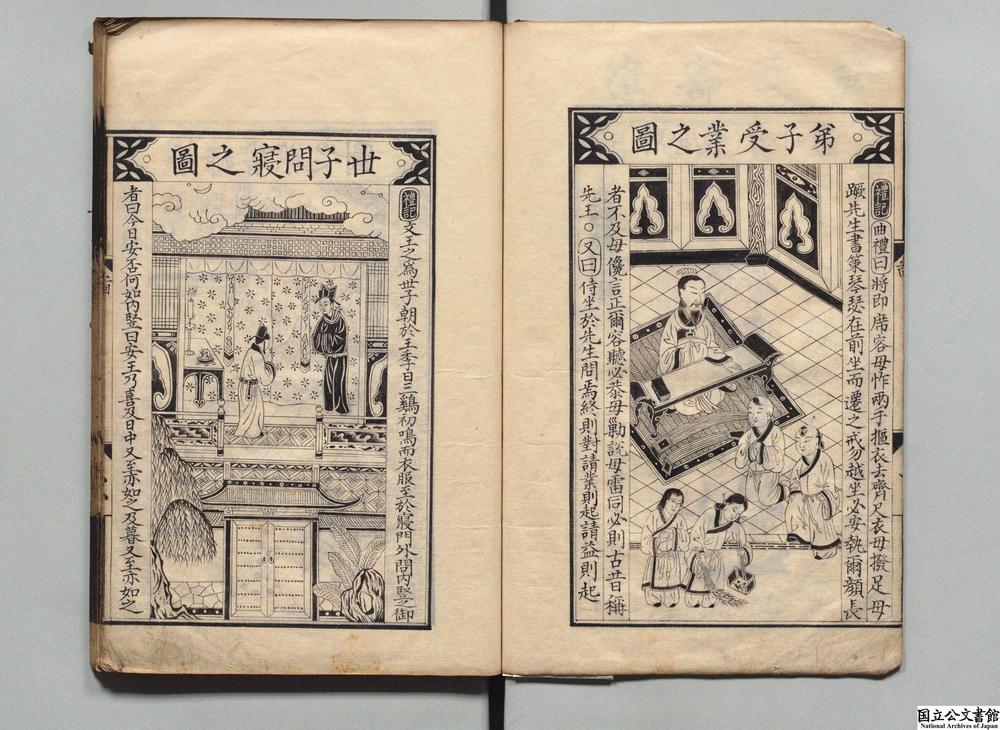 弟子受業之圖
禮記 曲禮曰將即席容毋怍兩手摳衣去齊尺衣毋撥足毋
蹶先生書策琴瑟在前坐而遷之戒勿越坐必安執爾顔長
者不及毋儳言正爾容聽必恭毋勦說毋雷同必則古昔稱
先王○又曰侍坐於先生問焉終則對請業則起請益則起
世子問寢之圖
禮記 文王之爲世子朝於王季日三鷄初鳴而衣服至於寢門外問内竪之御
者曰今日安否何如内竪曰安王乃喜及日中又至亦如之及暮又至亦如之
国立公文書館
National Archives of Japan